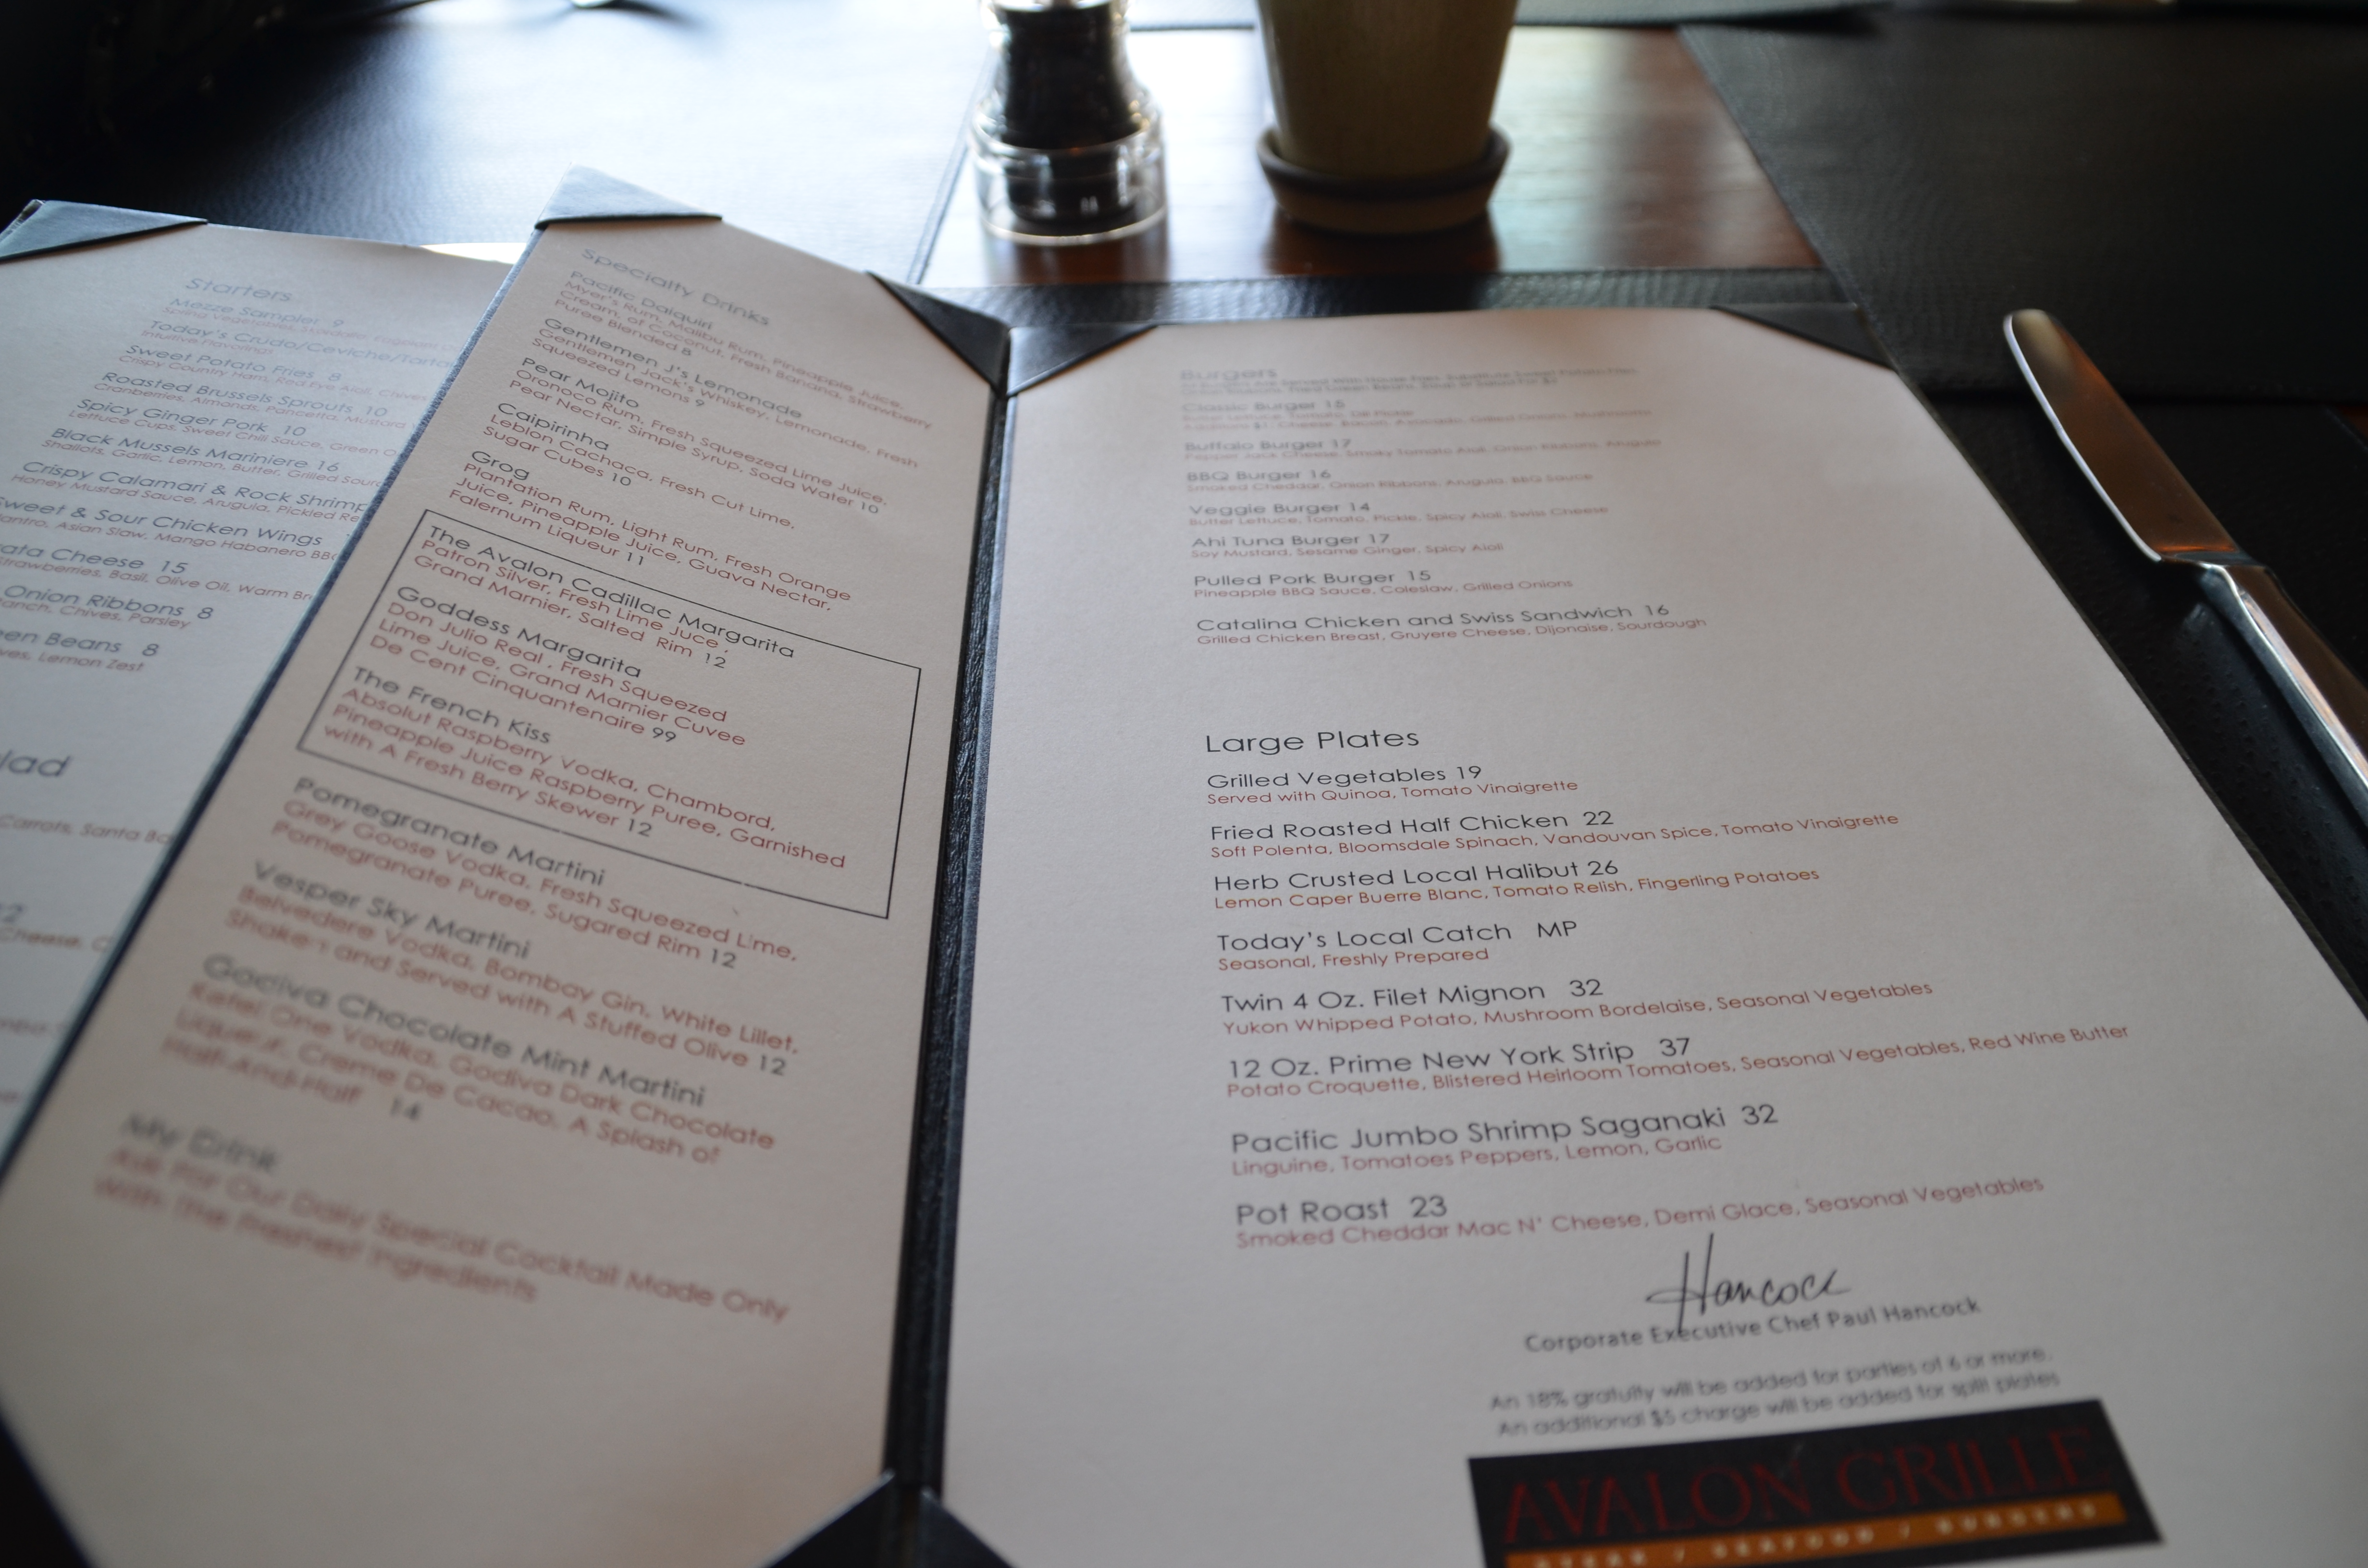 Starters
Mezze Sampler 9
Today's Crudo/Ceviche/Tarta
Intuitive Flavorings
Sweet Potato Fries 8
Crispy Country Ham, Red Eye Aioli, Chives
Roasted Brussels Sprouts 10
Cranberries, Almonds, Pancetta, Mustard
Spicy Ginger Pork 10
Lettuce Cups, Sweet Chili Sauce, Green O
Black Mussels Mariniere 16
Shallots, Garlic, Lemon, Butter, Grilled Sour
Crispy Calamari & Rock Shrimp
Honey Mustard Sauce, Arugula, Pickled Re
weet & Sour Chicken Wings
antro, Asian Slaw, Mango Habanero BBQ
ata Cheese 15
Strawberries, Basil, Olive Oil, Warm Br
Onion Ribbons 8
anch, Chives, Parsley
een Beans 8
ves, Lemon Zest
lad
Carrots, Santa Ba
Cheese, C
Specialty Drinks
Pacific Daiquiri
Myer's Rum, Malibu Rum, Pineapple Juice,
Cream, of Coconut, Fresh Banana, Strawberry
Puree Blended 8
Gentlemen J's Lemonade
Gentlemen Jack's Whiskey, Lemonade, Fresh
Squeezed Lemons 9
Pear Mojito
Oronoco Rum, Fresh Squeezed Lime Juice,
Pear Nectar, Simple Syrup, Soda Water 10
Caipirinha
Leblon Cachaca, Fresh Cut Lime,
Sugar Cubes 10
Grog
Plantation Rum, Light Rum, Fresh Orange
Juice, Pineapple Juice, Guava Nectar,
Falernum Liqueur 11
The Avalon Cadillac Margarita
Patron Silver, Fresh Lime Juce ,
Grand Marnier, Salted Rim 12
Goddess Margarita
Don Julio Real , Fresh Squeezed
Lime Juice, Grand Marnier Cuvee
De Cent Cinquantenaire 99
The French Kiss
Absolut Raspberry Vodka, Chambord,
Pineapple Juice Raspberry Puree, Garnished
with A Fresh Berry Skewer 12
Pomegranate Martini
Grey Goose Vodka, Fresh Squeezed Lime,
Pomegranate Puree, Sugared Rim 12
Vesper Sky Martini
Belvedere Vodka, Bombay Gin, White Lillet,
Shaken and Served with A Stuffed Olive 12
Godiva Chocolate Mint Martini
Ketel One Vodka, Godiva Dark Chocolate
Liqueur, Creme De Cacao, A Splash of
Half-And-Half 14
My Drink
Ask For Our Daily Special Cocktail Made Only
With The Freshest Ingredients
Burgers
Classic Burger 15
Buffalo Burger 17
Pepper Jack Cheese, Smoky Tomato Aioli, Onion Ribbons, Arugula
BBQ Burger 16
Smoked Cheddar, Onion Ribbons, Arugula, BBQ Sauce
Veggie Burger 14
Butter Lettuce, Tomato, Pickle, Spicy Aioli, Swiss Cheese
Ahi Tuna Burger 17
Soy Mustard, Sesame Ginger, Spicy Aioli
Pulled Pork Burger 15
Pineapple BBQ Sauce, Coleslaw, Grilled Onions
Catalina Chicken and Swiss Sandwich 16
Grilled Chicken Breast, Gruyere Cheese, Dijonaise, Sourdough
Large Plates
Grilled Vegetables 19
Served with Quinoa, Tomato Vinaigrette
Fried Roasted Half Chicken 22
Soft Polenta, Bloomsdale Spinach, Vandouvan Spice, Tomato Vinaigrette
Herb Crusted Local Halibut 26
Lemon Caper Buerre Blanc, Tomato Relish, Fingerling Potatoes
Today's Local Catch MP
Seasonal, Freshly Prepared
Twin 4 Oz. Filet Mignon 32
Yukon Whipped Potato, Mushroom Bordelaise, Seasonal Vegetables
12 Oz. Prime New York Strip 37
Potato Croquette, Blistered Heirloom Tomatoes, Seasonal Vegetables, Red Wine Butter
Pacific Jumbo Shrimp Saganaki 32
Linguine, Tomatoes Peppers, Lemon, Garlic
Pot Roast 23
Smoked Cheddar Mac N' Cheese, Demi Glace, Seasonal Vegetables
Hancock
Corporate Executive Chef Paul Hancock
An 18% gratuity will be added for parties of 6 or more.
An additional $5 charge will be added for split plates
AVALON GRILLE
STEAK / SEAFOOD / BURGERS